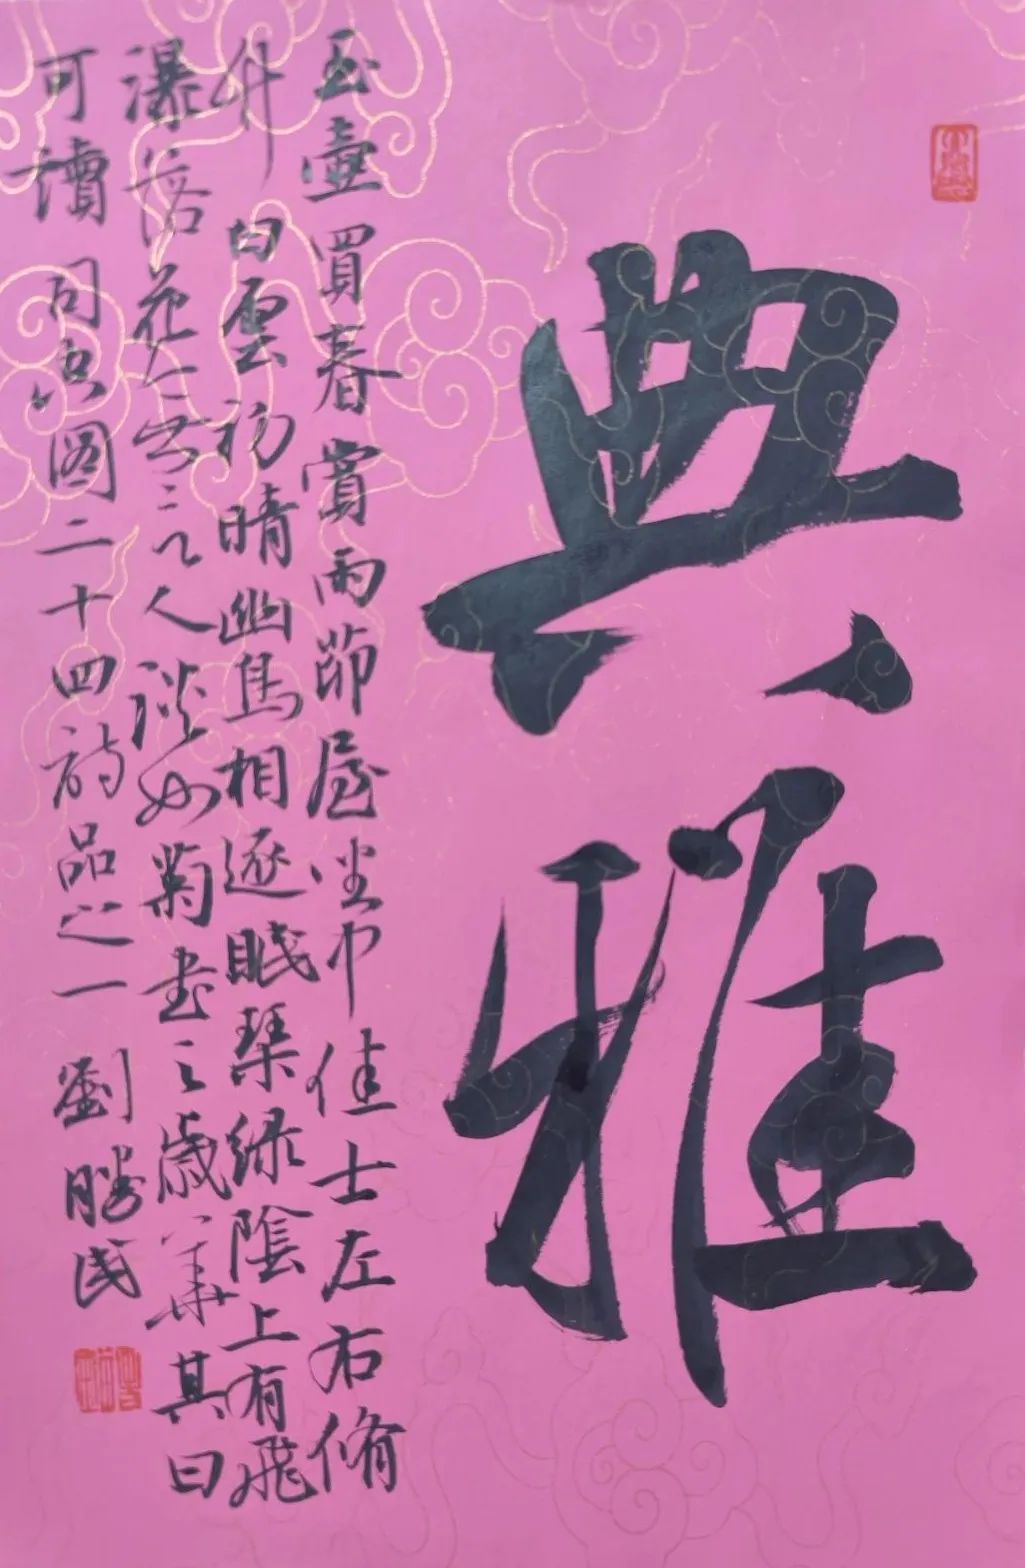 典雅
玉壺買春賞雨茆屋坐中佳士左右脩
竹白雲初晴幽鳥相逐眠琴緑陰上有飛
瀑落花無言人淡如菊書之歲華其曰
可讀司空图二十四詩品之一 劉勝民